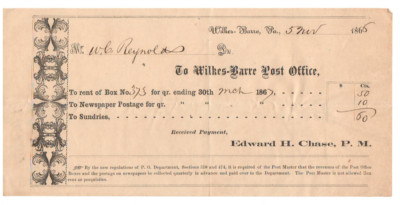 Wilkes-Barre, Pa., 5 Nov 1866
Mr. W. C. Reynolds Dr.
To Wilkes-Barre Post Office,
Cts.
To rent of Box No. 573 for qr. ending 30th 1867, 50
To Newspaper Postage for qr. " " " 10
To Sundries. 60
Received Payment,
Edward H. Chase, P. M.
By the new regulations of P. O. Department, Sections 170 and 174, it is required of the Post Master that the revenues of the Post Office
Boxes and the postage on newspapers be collected quarterly in advance and paid over to the Department. The Post Master is not allowed Box
rent as perquisites.